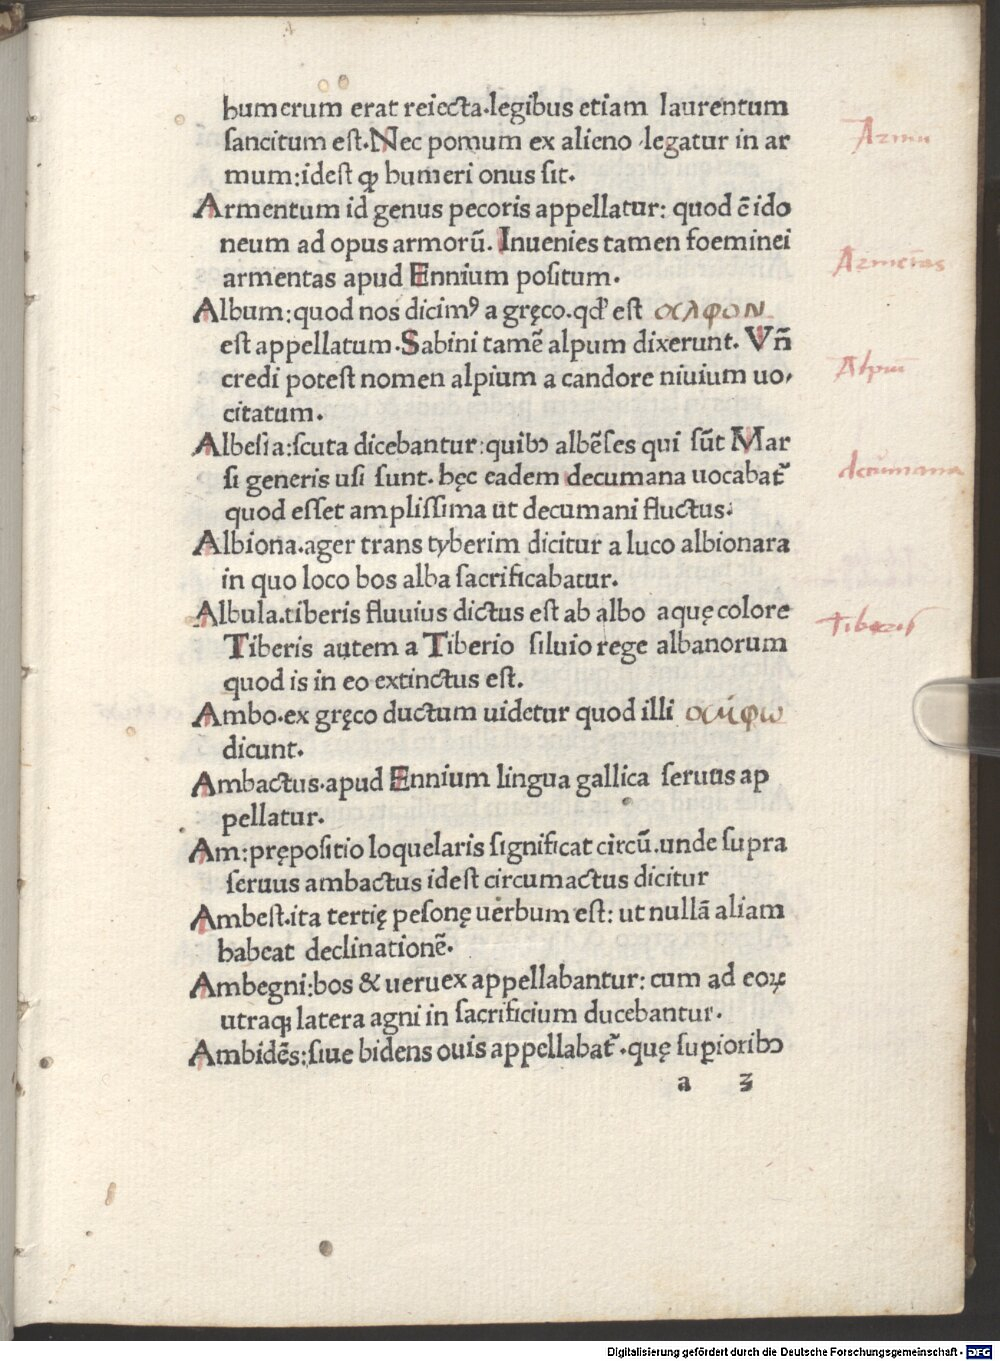 humerum erat reiecta.legibus etiam laurentum
sancitum est.Nec pomum ex alieno legatur in ar
mum:idest ꝙ humeri onus sit.
Armentum id genus pecoris appellatur: quod ē ido
neum ad opus armorū. Inuenies tamen foeminei
armentas apud Ennium positum.
Album:quod nos dicimꝰ a gręco.qđ est αλφον
est appellatum.Sabini tamē alpum dixerunt. Vñ
credi potest nomen alpium a candore niuium uo,
citatum.
Albesia:scuta dicebantur:quibꝰ albēses qui sūt Mar
si generis usi sunt. hęc eadem decumana uocabat᷑
quod esset amplissima ut decumani fluctus.
Albiona.ager trans tyberim dicitur a luco albionara
in quo loco bos alba sacrificabatur.
Albula.tiberis fluuius dictus est ab albo aquę colore
Tiberis autem a Tiberio siluio rege albanorum
quod is in eo extinctus est.
Ambo.ex gręco ductum uidetur quod illi αμφω
dicunt.
Ambactus.apud Ennium lingua gallica seruus ap
pellatur.
Am:prępositio loquelaris significat circū.unde supra
seruus ambactus idest circumactus dicitur
Ambest.ita tertię pesonę uerbum est: ut nullā aliam
habeat declinationē.
Ambegni:bos & ueruex appellabantur: cum ad eoꝝ
utraqꝫ latera agni in sacrificium ducebantur.
Ambidēs:siue bidens ouis appellabat᷑.quę suꝑioribꝰ
a 3
Armū
Armētas
Alpū
decūmana
tiberis
Digitalisierung gefördert durch die Deutsche Forschungsgemeinschaft - DFG